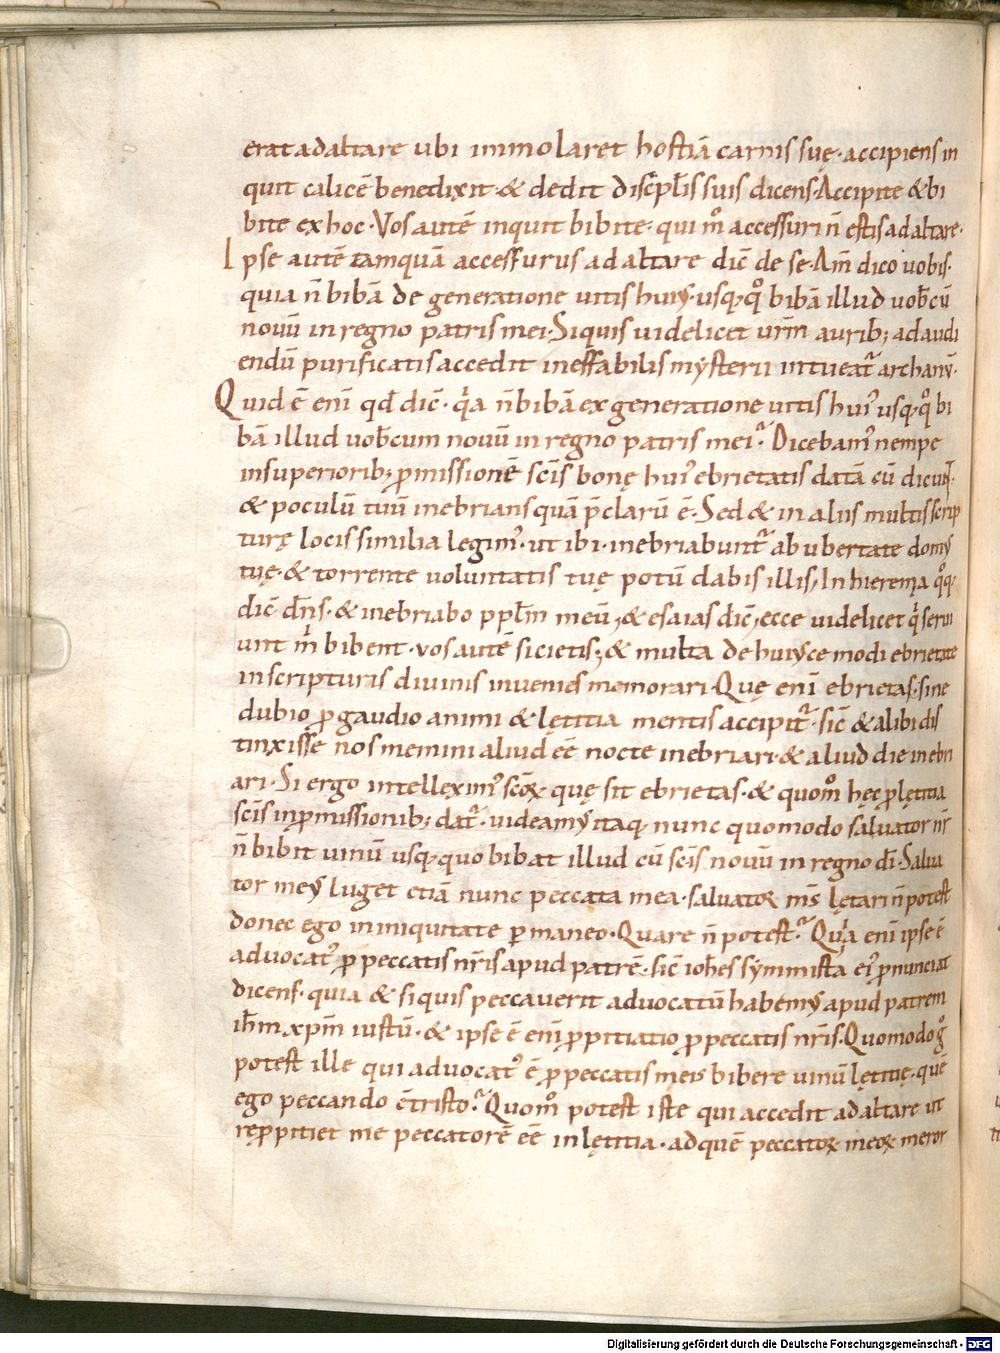 erat ad altare ubi immolaret hostiā carnis suę · accipiens in
quit calicē benedixit · & dedit discip̄lis suis dicens · Accipite & bi
bite ex hoc · Vos autē inquit bibite · qui m̊ accessuri n̄ estis ad altare ·
Ipse autē tamquā accessurus ad altare dic̄ de se · Am̄ dico uobis ·
quia n̄ bibā de generatione uitis huiꝰ · usq; q̊ bibā illud uob̄cū
nouū in regno patris mei · Siquis uidelicet ur̄m aurib; ad audi
endū purificatis accedit ineffabilis mẏsterii intueat᷑ archanū ·
Quid ē eni qd̄ dic̄ · q̓a n̄ bibā ex generatione uitis huiꝰ usq; q̊ bi
bā illud uob̄cum nouū in regno patris mei? Dicebamꝰ nempe
in superiorib; ꝓmissionē sc̄is bonę huiꝰ ebrietatis datā cū dicunt᷑ ·
& poculū tuū inebrians quā p̄clarū ē · Sed & in aliis multis scrip
turę locis similia legimꝰ · ut ibi · inebriabunt᷑ ab ubertate domꝰ
tuę · & torrente uoluntatis tuę potū dabis illis; In hieremia q̊q;
dic̄ dn̄s · & inebriabo pp̄lm meū; & esaias dic̄; ecce uidelicet q̓ serui
unt m̓ bibent · uos autē sicietis; & multa de huiꝰcemodi ebrietate
in scripturis diuinis inuenies memorari · Quę eni ebrietas · sine
dubio ꝓ gaudio animi & lętitia mentis accipit᷑ · sic̄ & alibi dis
tinxisse nos memini aliud eē nocte inebriari · & aliud die inebri
ari · Si ergo intelleximꝰ sc̄oꝝ quę sit ebrietas · & quom̊ hęc ꝓ lętitia
sc̄is in ꝓmissionib; dat᷑ · uideamꝰ itaq; nunc quomodo saluator nr̄
n̄ bibit uinū usq; quo bibat illud cū sc̄is nouū in regno dī · Salua
tor meꝰ luget etiā nunc peccata mea · saluatoꝝ ms̄ lętari n̄ potest
donec ego in iniquitate ꝑmaneo · Quare n̄ potest? Quia eni ipse ē
aduocatꝰ ꝓ peccatis nr̄is apud patrē · sic̄ ioh̄es sẏmmista eiꝰ ꝓnunciat
dicens · quia & siquis peccauerit aduocatū habemꝰ apud patrem
ih̄m xp̄m iustū · & ipse ē eni ꝓpitiatio ꝓ peccatis nr̄is · Quomodo g̊
potest ille qui aduocatꝰ ē ꝓ peccatis meis bibere uinū lętitię · quē
ego peccando c̄tristo? Quom̊ potest iste qui accedit ad altare ut
reꝓpitiet me peccatorē eē in lętitia · ad quē peccatoꝝ meoꝝ meror
Digitalisierung gefördert durch die Deutsche Forschungsgemeinschaft - DFG